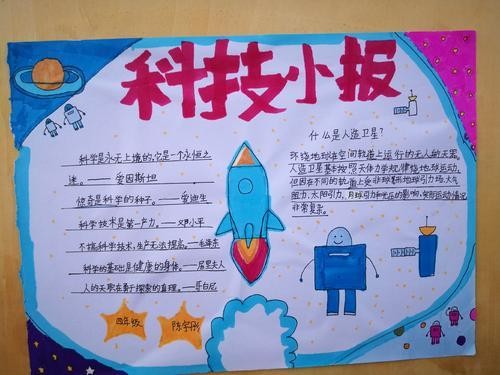 科技小报
科学是永无止境的,它是一个永恒之
谜。——爱因斯坦
惊奇是科学的种子。——爱迪生
科学技术是第一产力。——邓小平
不搞科学技术,生产无法提高。——毛泽东
科学的基础是健康的身体。——居里夫人
人的天职在勇于探索的真理。——哥白尼
四年级
陈宇彤
什么是人造卫星?
环绕地球在空间轨道上运行的无人航天器。
人造卫星基本按照天体力学规律绕地球运动,
但因在不同的轨道上受非球形地球引力场、大气
阻力、太阳引力、月球引力和光压的影响,实际运动情况
非常复杂。